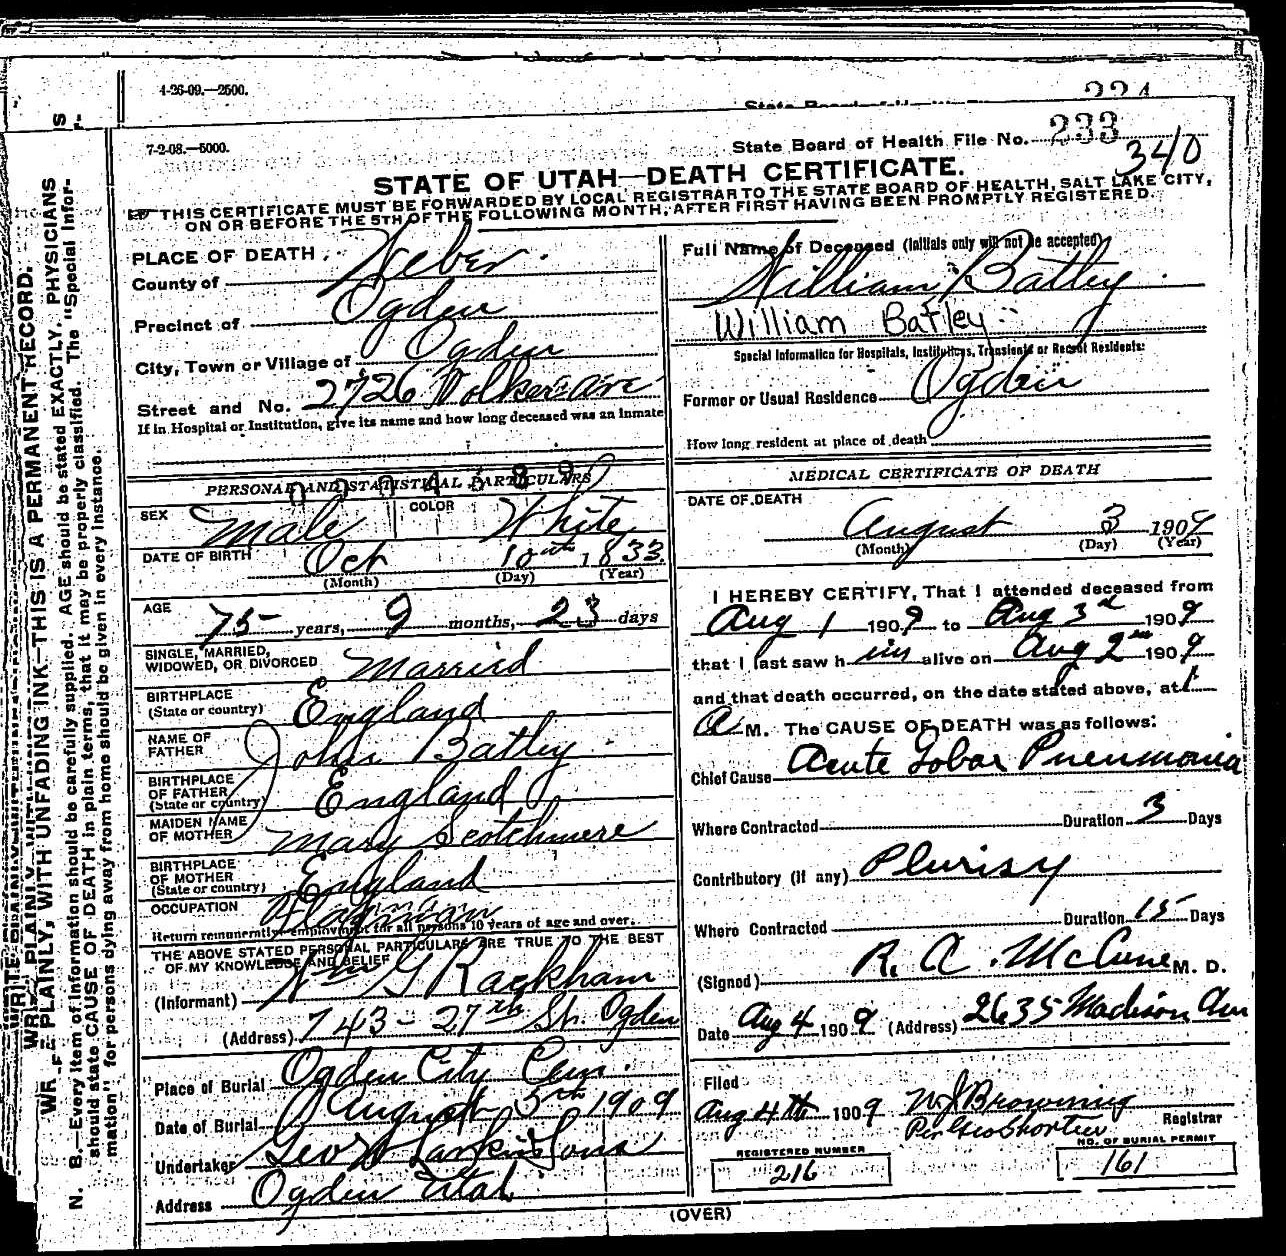 4-26-09.—2500.
7-2-08.—5000.
State Board of Health File No. 233
340
STATE OF UTAH—DEATH CERTIFICATE.
THIS CERTIFICATE MUST BE FORWARDED BY LOCAL REGISTRAR TO THE STATE BOARD OF HEALTH, SALT LAKE CITY,
ON OR BEFORE THE 5TH OF THE FOLLOWING MONTH, AFTER FIRST HAVING BEEN PROMPTLY REGISTERED.
PLACE OF DEATH
County of Weber
Precinct of Ogden
City, Town or Village of Ogden
Street and No. 2726 Ave
If in Hospital or Institution, give its name and how long deceased was an inmate
PERSONAL AND STATISTICAL PARTICULARS
SEX Male COLOR White
DATE OF BIRTH Oct 10th 1833
(Month) (Day) (Year)
AGE 75 years, 9 months, 23 days
SINGLE, MARRIED,
WIDOWED, OR DIVORCED Married
BIRTHPLACE
(State or country) England
NAME OF
FATHER John Batley
BIRTHPLACE
OF FATHER
(State or country) England
MAIDEN NAME
OF MOTHER Mary Scotchmere
BIRTHPLACE
OF MOTHER
(State or country) England
OCCUPATION Flagman
Return remunerative employment for all persons 10 years of age and over.
THE ABOVE STATED PERSONAL PARTICULARS ARE TRUE TO THE BEST
OF MY KNOWLEDGE AND BELIEF
(Informant) Wm G Rackham
(Address) 743-27th St. Ogden
Place of Burial Ogden City Cem.
Date of Burial August 5th 1909
Undertaker Geo W Larkin & Sons
Address Ogden Utah
Full Name of Deceased (Initials only will not be accepted)
William Batley
William Batley
Special Information for Hospitals, Institutions, Transients or Recent Residents:
Former or Usual Residence Ogden
How long resident at place of death
MEDICAL CERTIFICATE OF DEATH
DATE OF DEATH
August 3 1909
(Month) (Day) (Year)
I HEREBY CERTIFY, That I attended deceased from
Aug 1 1909 to Aug 3d 1909
that I last saw him alive on Aug 2nd 1909
and that death occurred, on the date stated above, at 1
A M. The CAUSE OF DEATH was as follows:
Chief Cause Acute Lobar Pneumonia
Where Contracted Duration 3 Days
Contributory (if any) Plurisy
Where Contracted Duration 15 Days
(Signed) R. A. McCune M. D.
Date Aug 4 1909 (Address) 2635 Madison Ave
Filed
Aug 4th 1909 W J Browning
Per Geo Shorten Registrar
REGISTERED NUMBER
216
NO. OF BURIAL PERMIT
161
(OVER)
WRITE PLAINLY, WITH UNFADING INK—THIS IS A PERMANENT RECORD.
N. B.—Every item of information should be carefully supplied. AGE should be stated EXACTLY. PHYSICIANS
should state CAUSE OF DEATH in plain terms, that it may be properly classified. The "Special Infor-
mation" for persons dying away from home should be given in every instance.